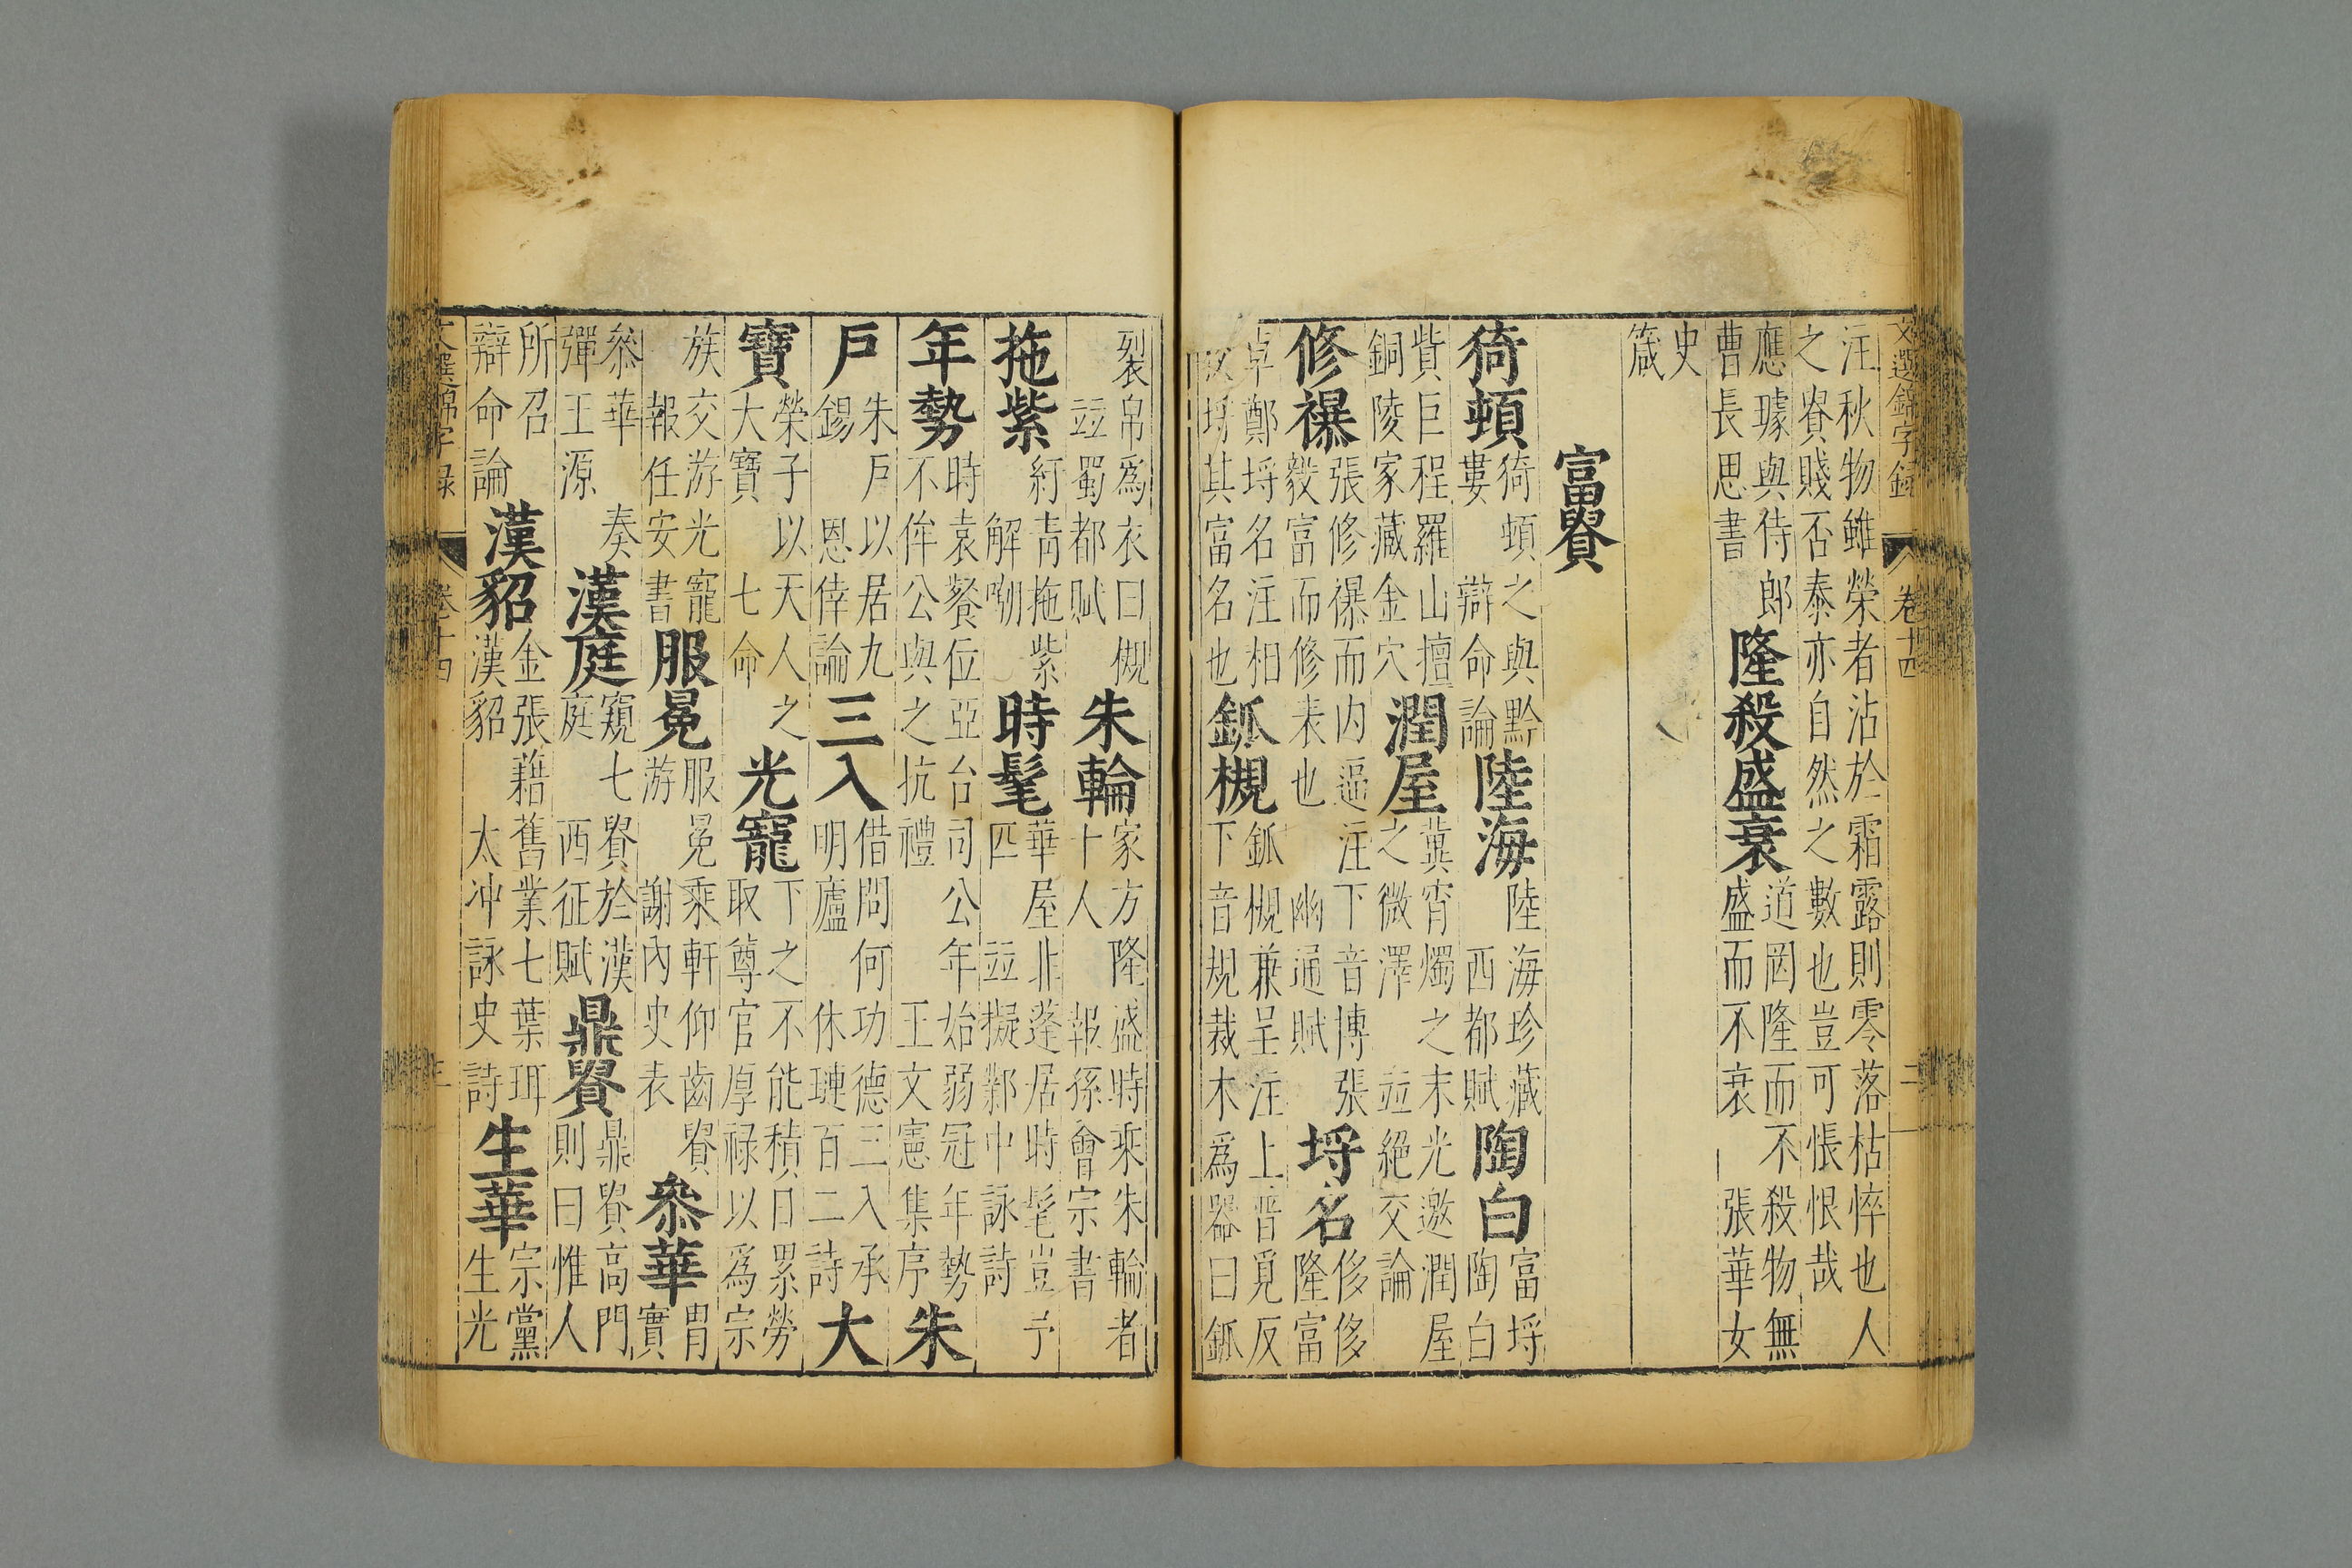 文選錦字錄
卷十四
二
注秋物雖榮者沾於霜露則零落枯悴也人
之貴賤否泰亦自然之數也豈可悵恨哉
應璩與侍郎
曹長思書
隆殺盛衰
道罔隆而不殺物無
盛而不衰 張華女
史
箴
富貴
猗頓
猗頓之與黔
婁 辯命論
陸海
陸海珍藏
西都賦
陶白
富埒
陶白
貲巨程羅山擅
銅陵家藏金穴
潤屋
冀宵燭之末光邀潤屋
之微澤 竝絕交論
修襮
張修襮而內逼注下音博張
毅富而修表也 幽通賦
埒名
侈侈
隆富
卓鄭埒名注相
埒其富名也
鈲槻
鈲槻兼呈注上普覓反
下音規裁木爲器曰鈲
裂帛爲衣曰槻
竝蜀都賦
朱輪
家方隆盛時乘朱輪者
十人 報孫會宗書
拖紫
紆青拖紫
解嘲
時髦
華屋非蓬居時髦豈予
匹 竝擬鄴中詠詩
年勢
時袁粲位亞台司公年始弱冠年勢
不侔公與之抗禮 王文憲集序
朱
戶
朱戶以居九
錫 恩倖論
三入
借問何功德三入承
明廬 休璉百二詩
大
寶
榮子以天人之
大寶 七命
光寵
下之不能積日累勞
取尊官厚祿以爲宗
族交游光寵
報任安書
服冕
服冕乘軒仰齒貴
游 謝內史表
叅華
胄
實
叅華 奏
彈王源
漢庭
窺七貴於漢
庭 西征賦
鼎貴
鼎貴高門
則曰惟人
所召
辯命論
漢貂
金張藉舊業七葉珥
漢貂 太冲詠史詩
生華
宗黨
生光
文選錦字錄
卷十四